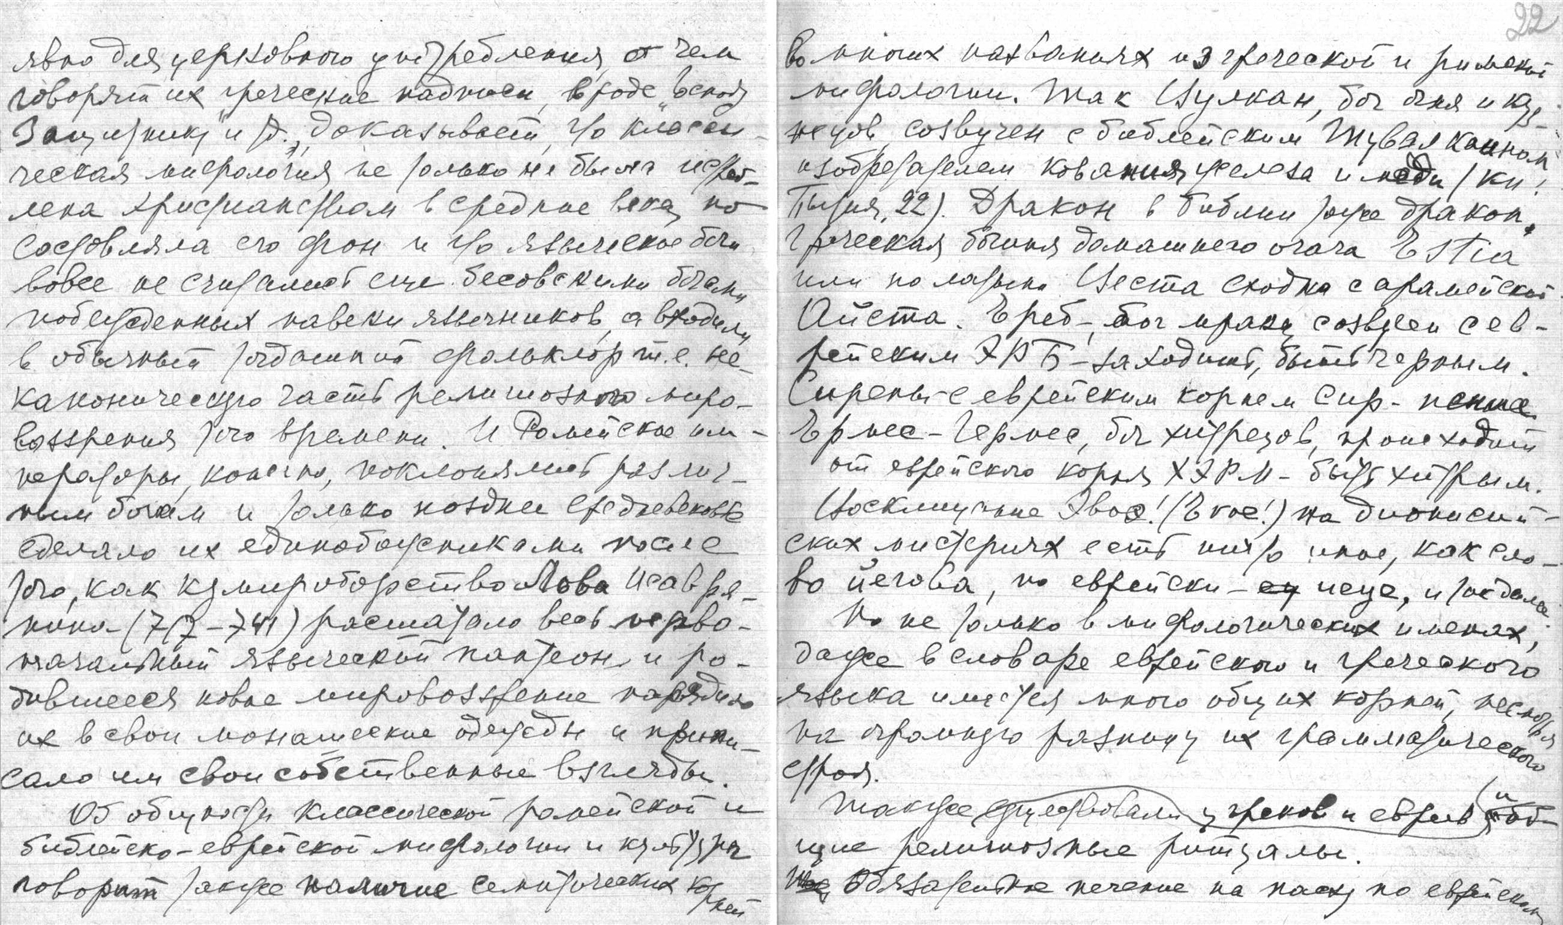 явно для церковного употребления, о чем
говорят их греческие надписи, вроде "Господу
Защитнику" и др., доказывает, что класси-
ческая мифология не только не была истреб-
лена христианством в средние века, но
составляла его фон и что языческие боги
вовсе не считались еще бесовскими богами
побежденных навеки язычников, а входили
в обычный тогдашний фольклор т.е. не-
каноническую часть религиозного миро-
воззрения того времени. И Ромейские им-
ператоры, конечно, поклонялись различ-
ным богам и только позднее средневековье
сделало их единобожниками после
того, как кумироборство Льва Исавря-
нина (717-741) расшатало весь перво-
начальный языческий пантеон, и ро-
дившееся новое мировоззрение нарядило
их в свои монашеские одежды и припи-
сало им свои собственные взгляды.
Об общности классической ромейской и
библейско-еврейской мифологии и культуры
говорит также наличие семитических корней
22
во многих названиях из греческой и римской
мифологии. Так Вулкан, бог огня и куз-
нецов созвучен с библейским Тувалкаином
изобретателем кования железа и меди (кн.
Бытия, 22). Дракон в библии тоже дракон,
Греческая богиня домашнего очага Estia
или по латыни Веста сходна с арамейской
Айста. Эреб - бог мрака созвучен с ев-
рейским ЭРБ - заходить, быть черным.
Сирены - с еврейским корнем Сир - пение
Эрмес - Гермес, бог хитрецов, происходит
от еврейского корня ХЭРМ - быть хитрым.
Восклицание Эвоэ! (Evoe!) на дионисий-
ских мистериях есть ничто иное, как сло-
во Йегова, по еврейски - иеуе, и так далее.
Но не только в мифологических именах,
даже в словаре еврейского и греческого
языка имеется много общих корней, несмотря
на огромную разницу их грамматического
строя.
Также существовали у греков и евреев и об-
щие религиозные ритуалы.
Обязательное печение на пасху по еврейскому